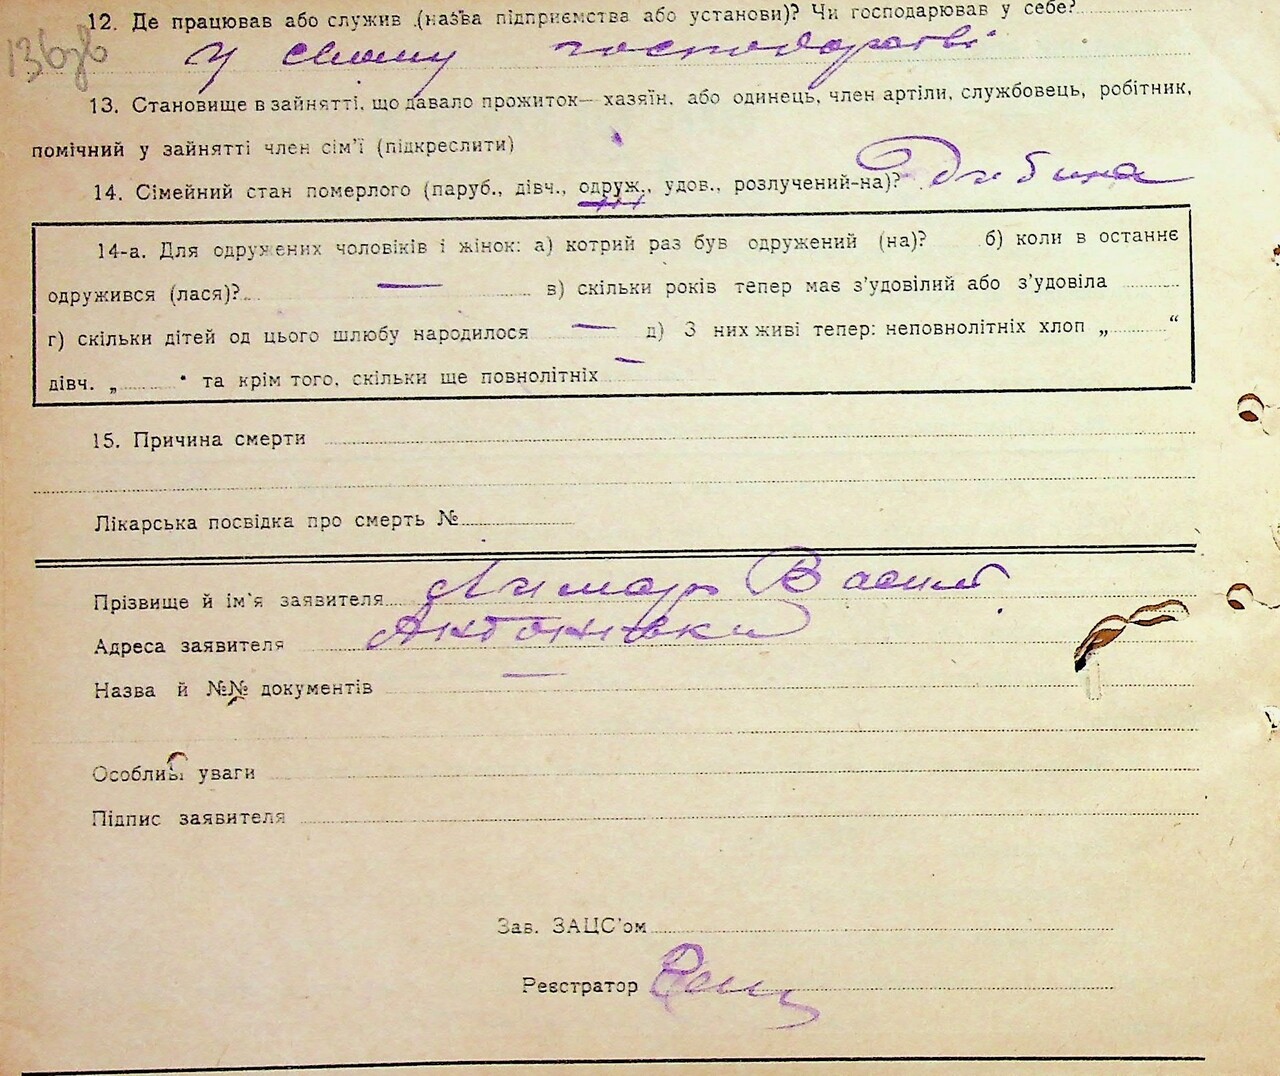 12. Де працював або служив (назва підприємства або установи)? Чи господарював у себе?
136зв
У своему господарстві
13. Становище в зайнятті, що давало прожиток— хазяїн, або одинець, член артіли, службовець, робітник,
помічний у зайнятті член сім'ї (підкреслити)
14. Сімейний стан померлого (паруб., дівч., одруж., удов., розлучений-на)? Дитина
14-а. Для одружених чоловіків і жінок: а) котрий раз був одружений (на)? б) коли в останнє
одружився (лася)? — в) скільки років тепер має з'удовілий або з'удовіла
г) скільки дітей од цього шлюбу народилося — д) З них живі тепер: неповнолітніх хлоп „ “
дівч. „ “ та крім того, скільки ще повнолітніх —
15. Причина смерти
Лікарська посвідка про смерть №
Прізвище й ім'я заявителя Лимарь Василь
Адреса заявителя Антонівка
Назва й №№ документів —
Особливі уваги
Підпис заявителя
Зав. ЗАЦС'ом
Реєстратор